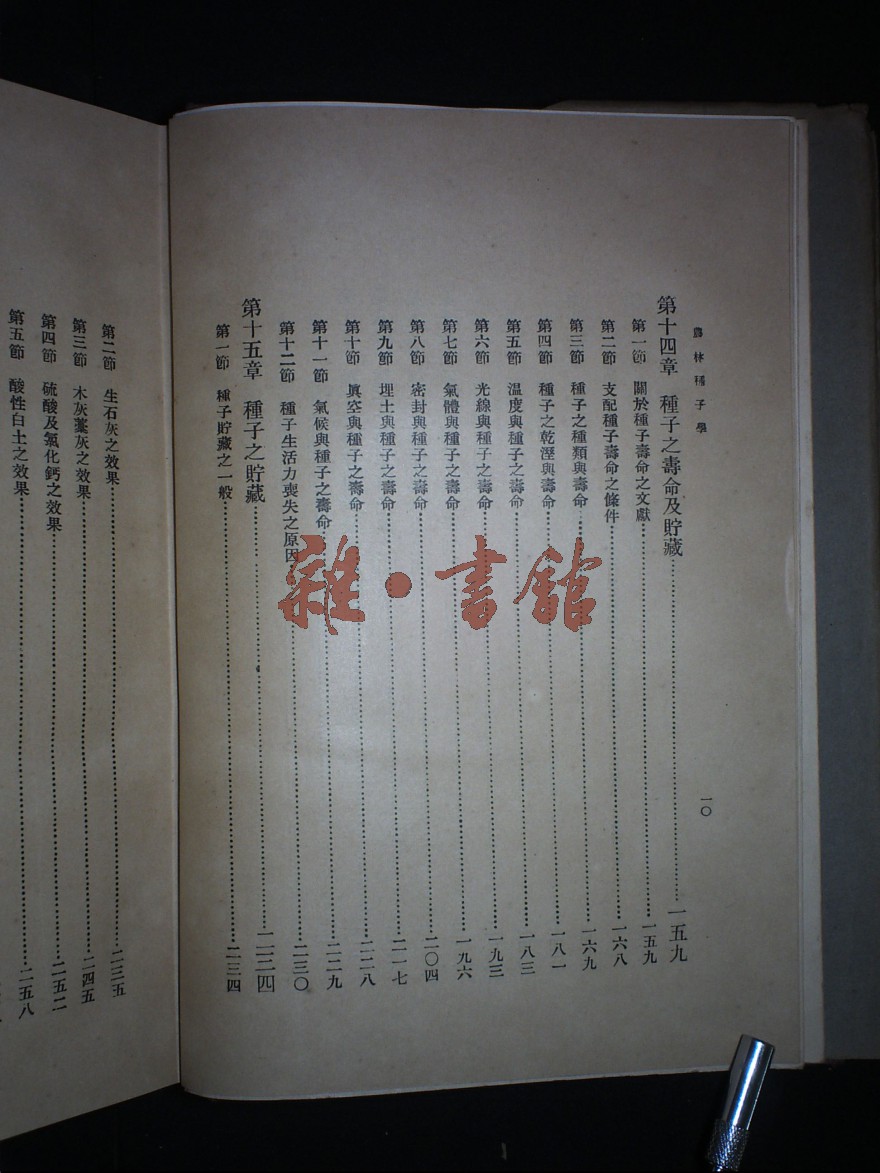 農林種子學
一〇
第十四章 種子之壽命及貯藏……一五九
第一節 關於種子壽命之文獻……一五九
第二節 支配種子壽命之條件……一六八
第三節 種子之種類與壽命……一六九
第四節 種子之乾溼與壽命……一八一
第五節 温度與種子之壽命……一八三
第六節 光線與種子之壽命……一九三
第七節 氣體與種子之壽命……一九六
第八節 密封與種子之壽命……二〇四
第九節 埋土與種子之壽命……二一七
第十節 眞空與種子之壽命……二二八
第十一節 氣候與種子之壽命……二二九
第十二節 種子生活力喪失之原因……二三〇
第十五章 種子之貯藏……二三四
第一節 種子貯藏之一般……二三四
第二節 生石灰之效果……二三五
第三節 木灰藁灰之效果……二四五
第四節 硫酸及氯化鈣之效果……二五二
第五節 酸性白土之效果……二五八
雜·書館